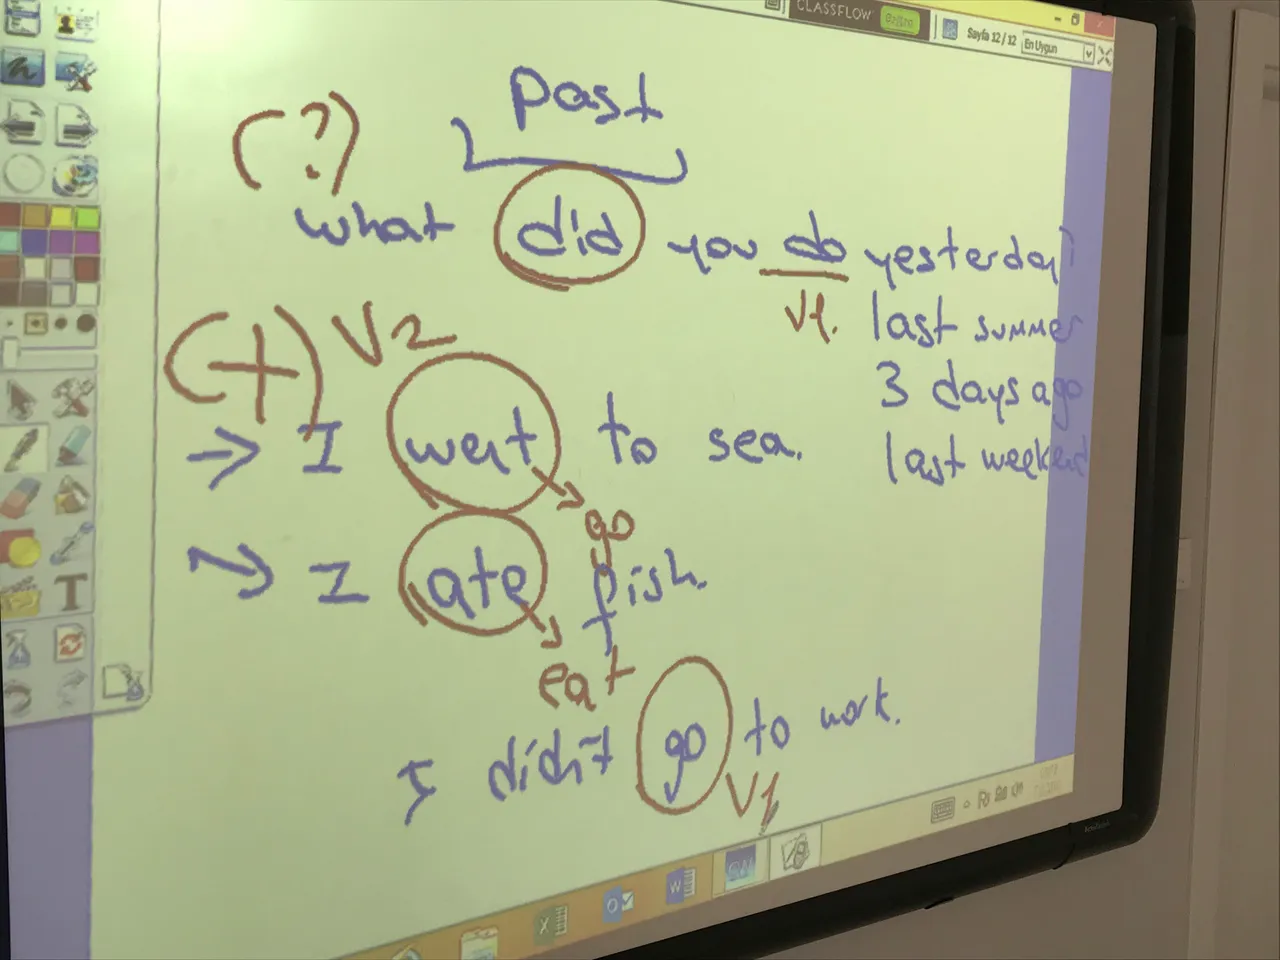 CLASSFLOW
Sayfa 12 / 12
En Uygun
Past
(?)
what did you do yesterday?
V1.
last summer
3 days ago
last weekend
(+) V2
→ I went to sea.
go
→ I ate fish.
eat
I didn't go to work.
V1